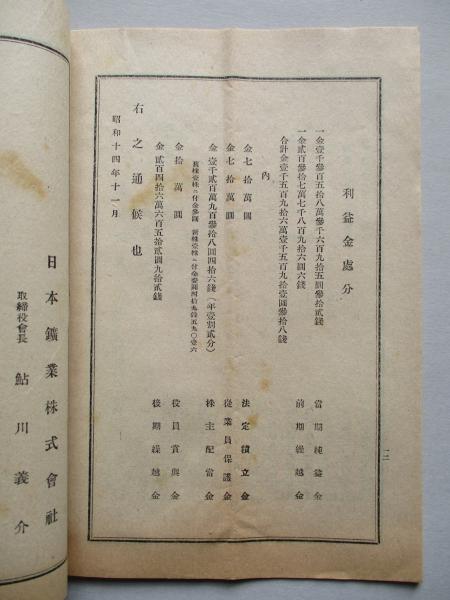 利益金處分
一金壹千參百五拾八萬參千六百九拾五圓參拾貳錢 當期純益金
一金貳百參拾七萬七千八百九拾六圓六錢 前期繰越金
合計金壹千五百九拾六萬壹千五百九拾壹圓參拾八錢
內
金七拾萬圓 法定積立金
金七拾萬圓 從業員保護金
金壹千貳百萬九百參拾八圓四拾六錢(年壹割貳分) 株主配當金
舊株壹株ニ付金參圓 新株壹株ニ付金
金拾萬圓 役員賞與金
金貳百四拾六萬六百五拾貳圓九拾貳錢 後期繰越金
右之通候也
昭和十四年十一月
日本鑛業株式會社
取締役會長 鮎川義介
二